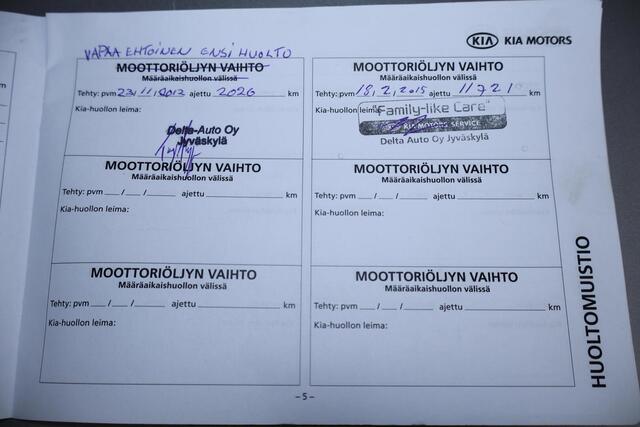 VAPAAEHTOINEN ENSIHUOLTO
KIA KIA MOTORS
MOOTTORIÖLJYN VAIHTO
Määräaikaishuollon välissä
Tehty: pvm 23.11.2012 ajettu 2026 km
Kia-huollon leima:
Delta-Auto Oy
Jyväskylä
MOOTTORIÖLJYN VAIHTO
Määräaikaishuollon välissä
Tehty: pvm 18.2.2015 ajettu 11721 km
Kia-huollon leima:
"Family-like Care"
KIA MOTORS SERVICE
Delta Auto Oy Jyväskylä
MOOTTORIÖLJYN VAIHTO
Määräaikaishuollon välissä
Tehty: pvm __ / __ / __ ajettu ____ km
Kia-huollon leima:
MOOTTORIÖLJYN VAIHTO
Määräaikaishuollon välissä
Tehty: pvm __ / __ / __ ajettu ____ km
Kia-huollon leima:
MOOTTORIÖLJYN VAIHTO
Määräaikaishuollon välissä
Tehty: pvm __ / __ / __ ajettu ____ km
Kia-huollon leima:
MOOTTORIÖLJYN VAIHTO
Määräaikaishuollon välissä
Tehty: pvm __ / __ / __ ajettu ____ km
Kia-huollon leima:
HUOLTOMUISTIO
– 5 –